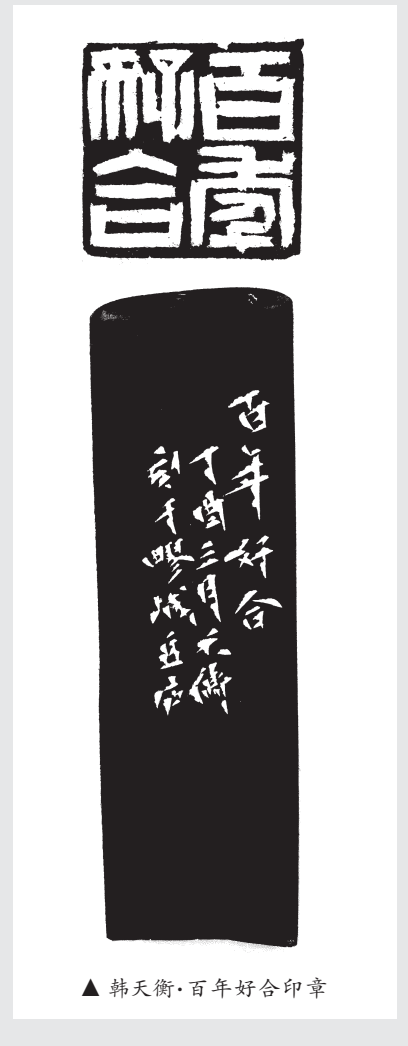 百年
好合
百年好合
丁酉三月天衡
刻于疁城豆庐
▲ 韩天衡·百年好合印章